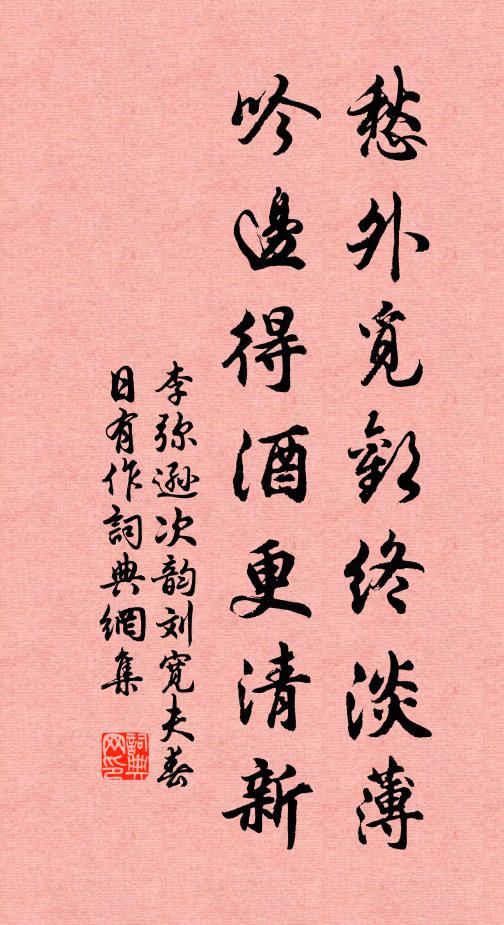 愁外觅歡终淡薄
吟邊得酒更清新
李弥遜次韵刘宽夫春
日有作詞典網集
詞典網印